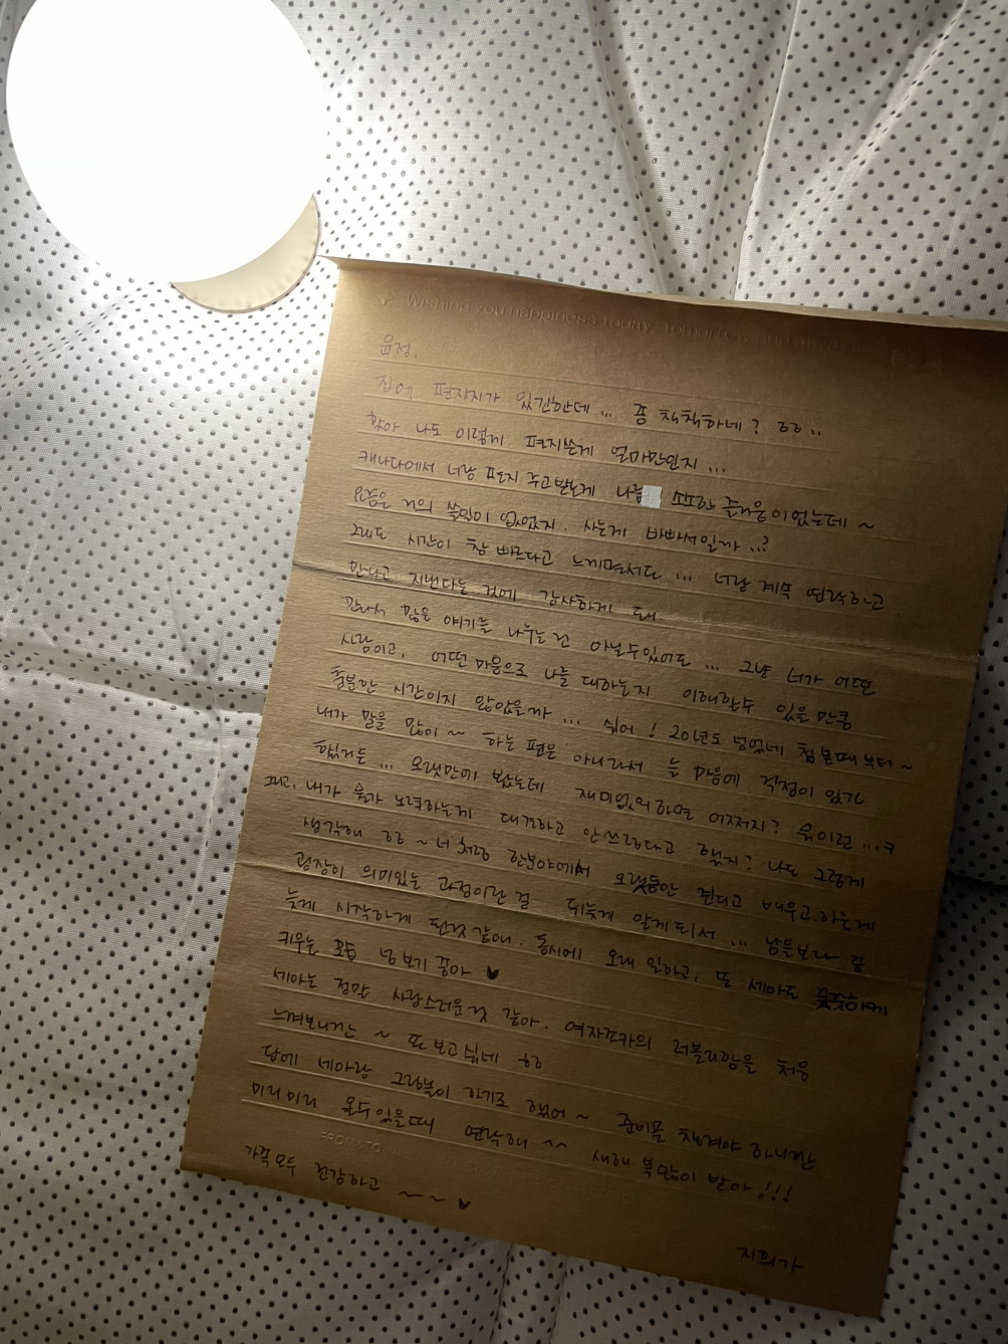 Wishing you happiness today, tomorrow and always
윤정,
집에 편지지가 있긴한데... 좀 칙칙하네? ㅎㅎ..
찾아 나도 이렇게 편지쓴게 얼마만인지...
캐나다에서 너랑 편지 주고받는게 나름 소소한 즐거움이었는데~
요즘은 거의 쓸일이 없었지. 사는게 바빠서일까..?
그래도 시간이 참 빠르다고 느끼면서도... 너랑 계속 연락하고
만나고 지낸다는 것에 감사하게 돼.
만나서 많은 얘기를 나누는건 아닐수있어도... 그냥 너가 어떤
사람이고, 어떤 마음으로 나를 대하는지 이해할수 있을 만큼
충분한 시간이지 않았을까... 싶어! 20년도 넘었네 첨 본때부터~
내가 말을 많이~ 하는 편은 아니라서 늘 마음에 걱정이 있긴
했거든... 오랫만에 봤는데 재미없어하면 어쩌지? 뭐 이런...ㅋ
그리고, 내가 뭔가 노력하는게 대견하고 안쓰럽다고 했지? 나도 그렇게
생각해 ㅎㅎ ~ 너처럼 한분야에서 오랫동안 견디고 배우고,하는게
굉장히 의미있는 과정이란 걸 뒤늦게 알게되서... 남들보다 좀
늦게 시작하게 된것 같애. 동시에 오래 일하고, 또 세아도
키우는 모습 넘 보기 좋아 ♥
세아는 정말 사랑스러운것 같아. 여자조카의 러블리함을 처음
느껴보니깐~ 또 보고싶네 ㅎㅎ
담에 세아랑 그림놀이 하기로 했어~ 준비물 챙겨야 하니깐
미리미리 올수있을때 연락해 ^^ 새해 복많이 받아!!!
가족모두 건강하고 ~~~ ♥
지희가